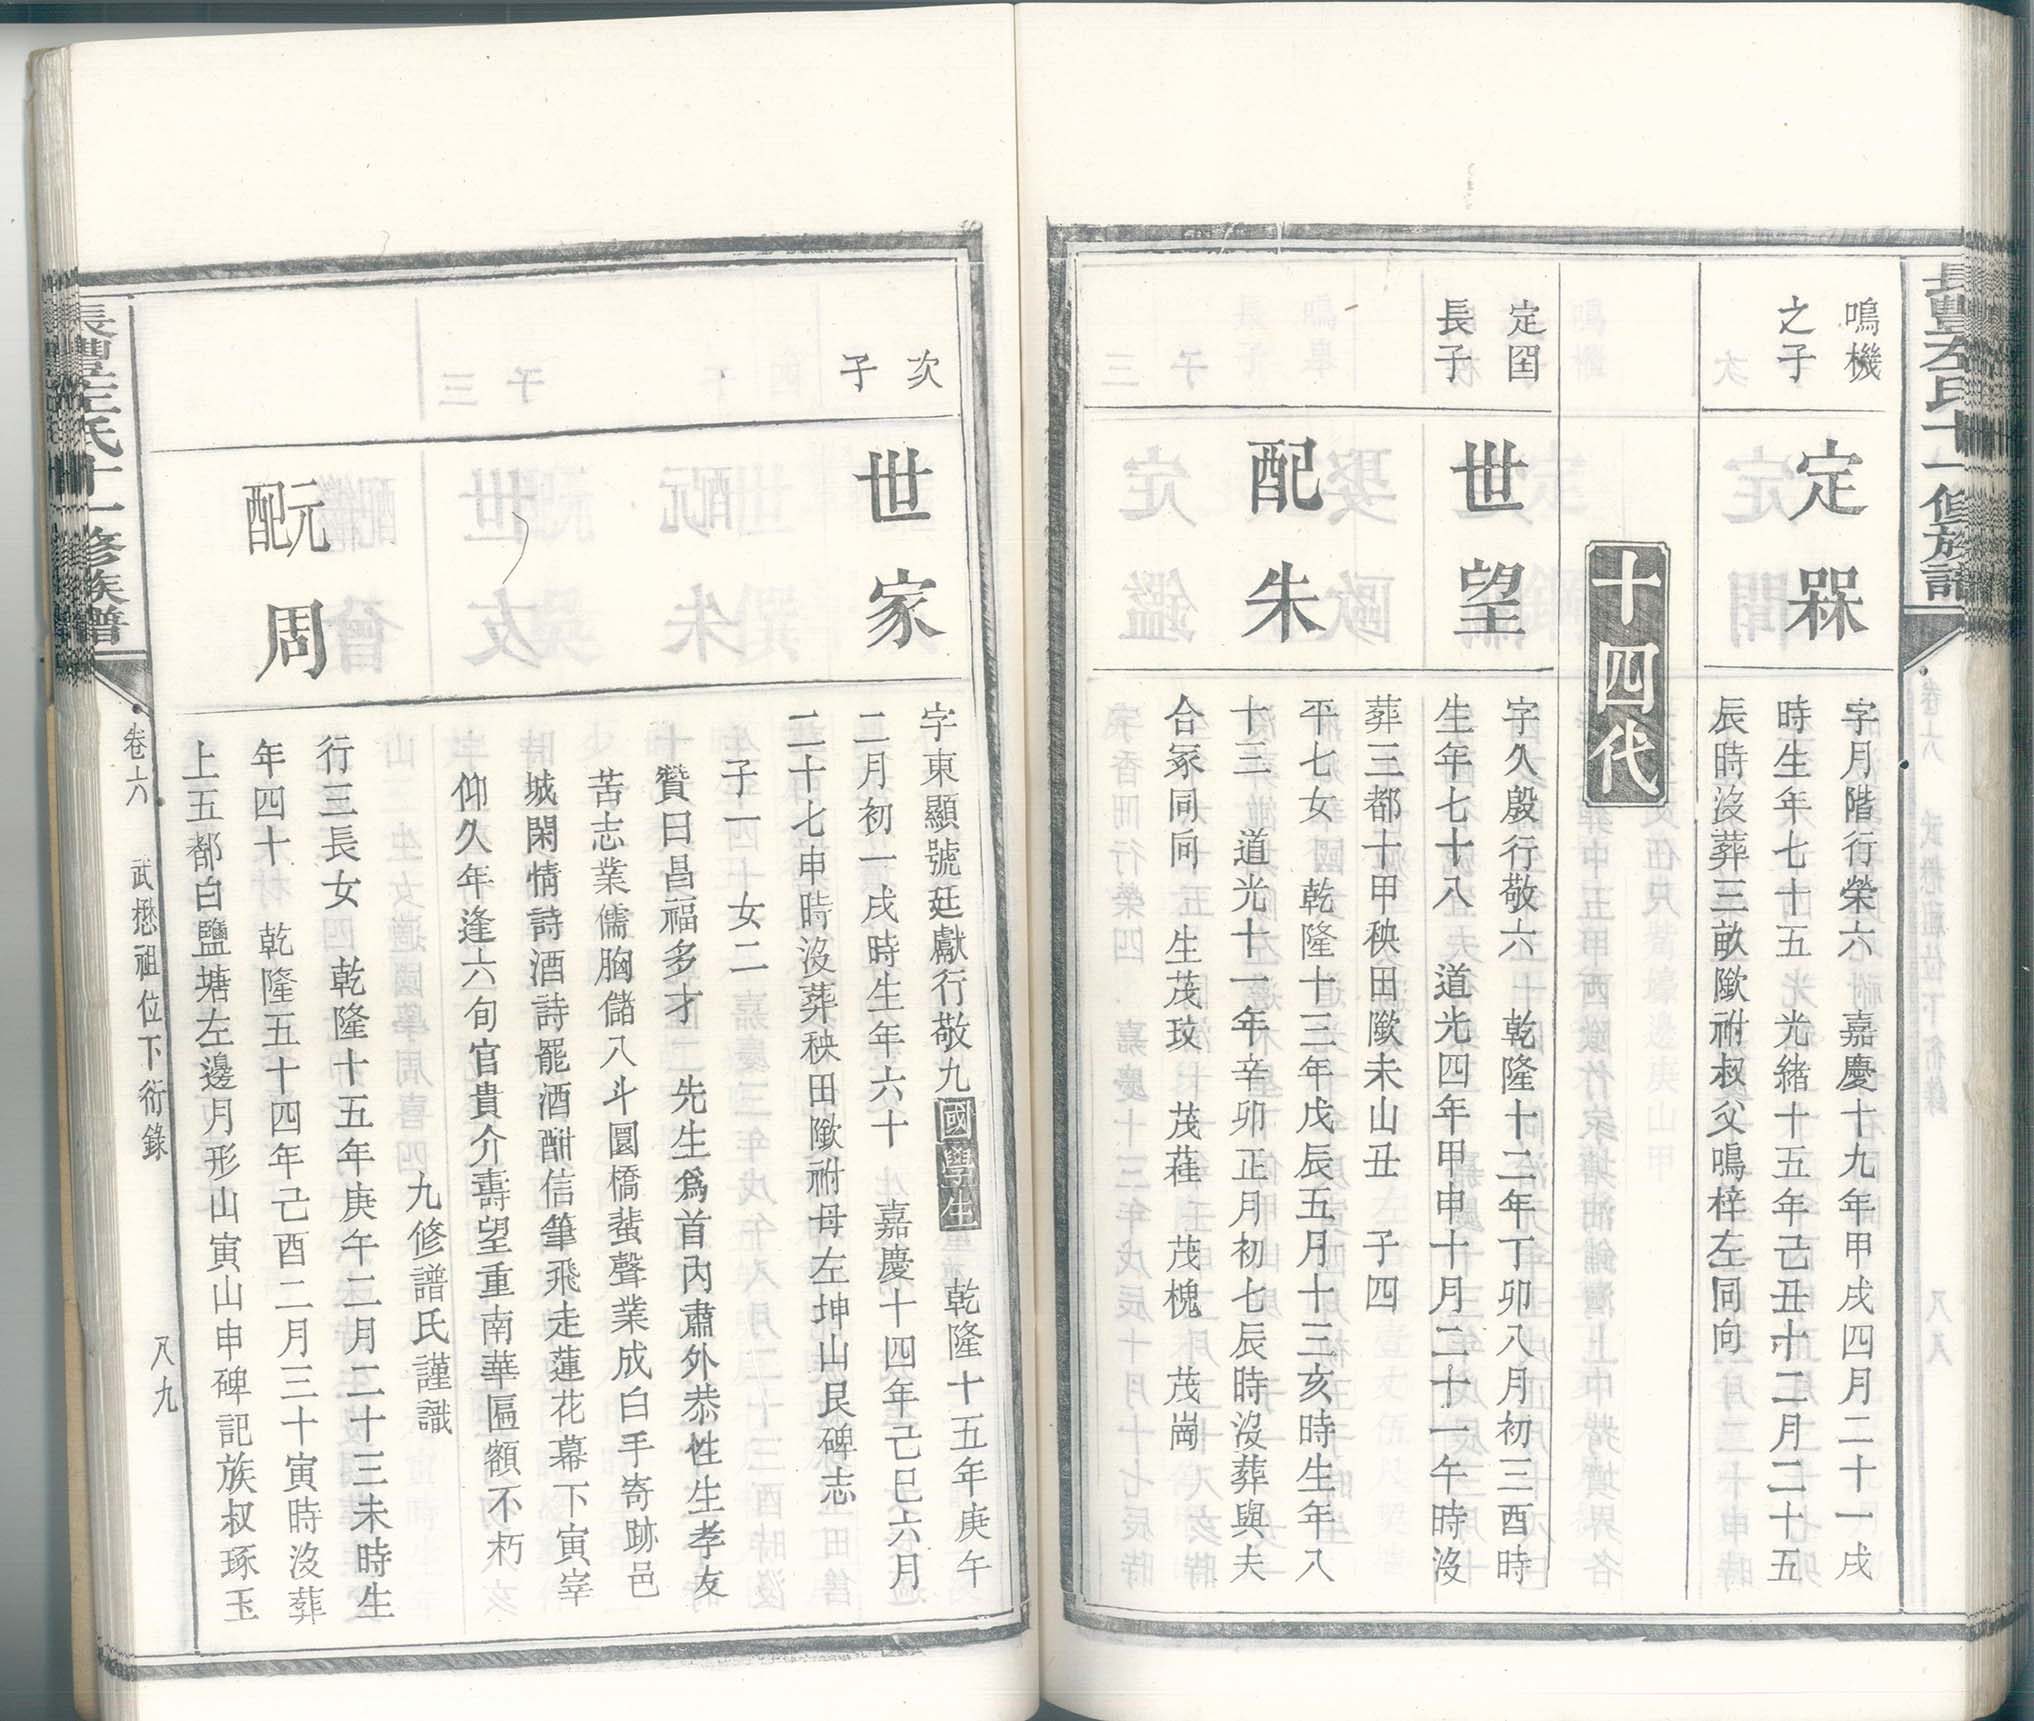 長豐左氏十一修族譜
鳴機
之子
定槑
字月階行榮六　嘉慶十九年甲戌四月二十一戌
時生年七十五　光緒十五年己丑十二月二十五
辰時沒葬三畝歐祔叔父鳴梓左同向
十四代
定囶
長子
世望
字久殷行敬六　乾隆十二年丁卯八月初三酉時
生年七十八　道光四年甲申十月二十一午時沒
葬三都十甲秧田歐未山丑　子四
配朱
平七女　乾隆十三年戊辰五月十三亥時生年八
十三　道光十一年辛卯正月初七辰時沒葬與夫
合冢同向　生茂玟　茂蓕　茂槐　茂崗
次
子
世家
字東顯號廷獻行敬九國學生　乾隆十五年庚午
二月初一戌時生年六十　嘉慶十四年己巳六月
二十七申時沒葬秧田歐祔母左坤山艮碑志
子一　女二
贊曰昌福多才　先生為首內肅外恭性生孝友
苦志業儒胸儲八斗圜橋蜚聲業成白手寄跡邑
城閑情詩酒詩罷酒酣信筆飛走蓮花幕下寅寀
仰久年逢六旬官貴介壽望重南華匾額不朽
九修譜氏謹識
元配周
行三長女　乾隆十五年庚午二月二十三未時生
年四十　乾隆五十四年己酉二月三十寅時沒葬
上五都白鹽塘左邊月形山寅山申碑記族叔琢玉
長豐左氏十一修族譜
卷六　武懋祖位下衍錄　八九